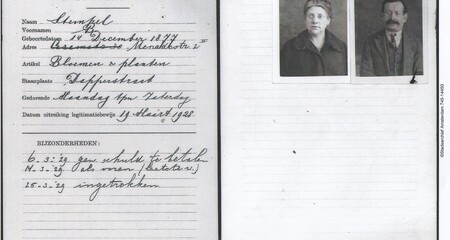 Naam Stempel
Voornamen B.
Geboortedatum 14 December 1877
Adres
Artikel Bloemen & planten
Staanplaats Dapperstraat
Gedurende Maandag t/m Zaterdag
Datum uitreiking legitimatiebewijs 19 Maart 1928.
BIJZONDERHEDEN:
6-3-29 geen schuld te betalen
14-3-29 als
25-3-29 ingetrokken
©Stadsarchief Amsterdam